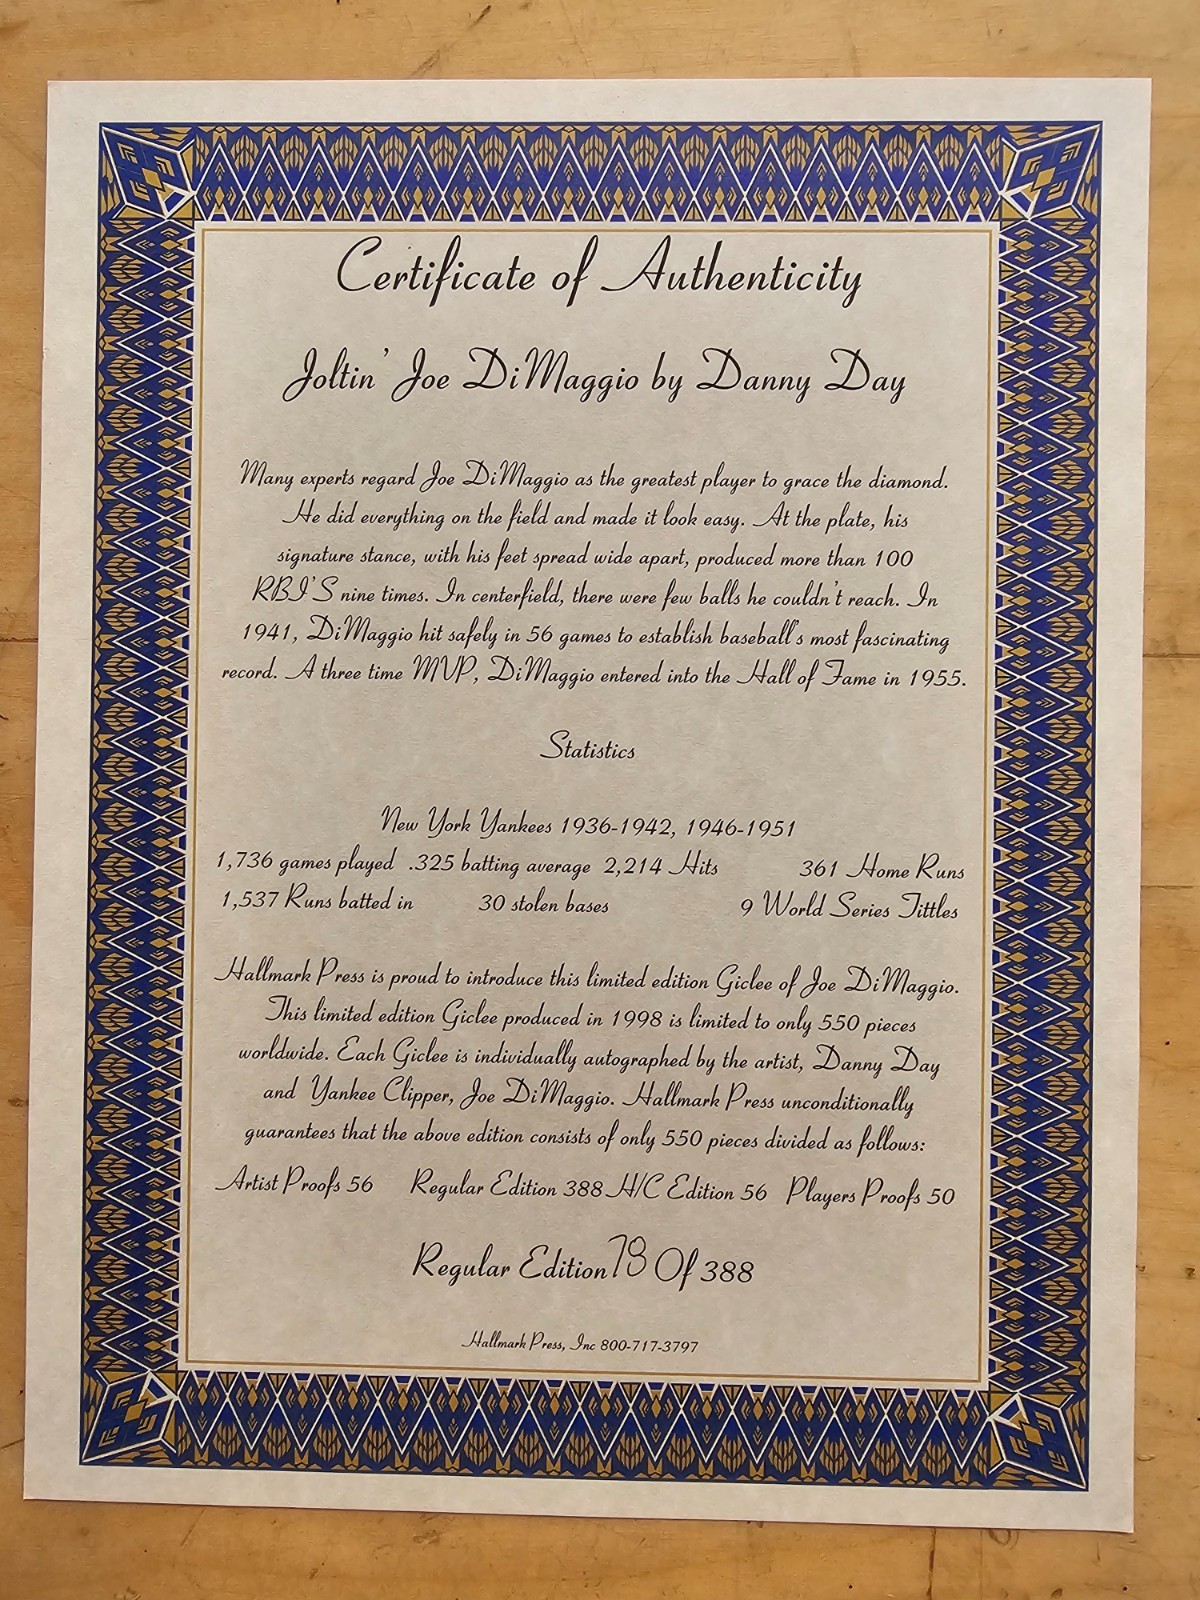 Certificate of Authenticity
Joltin' Joe DiMaggio by Danny Day
Many experts regard Joe DiMaggio as the greatest player to grace the diamond.
He did everything on the field and made it look easy. At the plate, his
signature stance, with his feet spread wide apart, produced more than 100
RBI'S nine times. In centerfield, there were few balls he couldn't reach. In
1941, DiMaggio hit safely in 56 games to establish baseball's most fascinating
record. A three time MVP, DiMaggio entered into the Hall of Fame in 1955.
Statistics
New York Yankees 1936-1942, 1946-1951
1,736 games played .325 batting average 2,214 Hits 361 Home Runs
1,537 Runs batted in 30 stolen bases 9 World Series Tittles
Hallmark Press is proud to introduce this limited edition Giclee of Joe DiMaggio.
This limited edition Giclee produced in 1998 is limited to only 550 pieces
worldwide. Each Giclee is individually autographed by the artist, Danny Day
and Yankee Clipper, Joe DiMaggio. Hallmark Press unconditionally
guarantees that the above edition consists of only 550 pieces divided as follows:
Artist Proofs 56 Regular Edition 388 H/C Edition 56 Players Proofs 50
Regular Edition 78 Of 388
Hallmark Press, Inc 800-717-3797